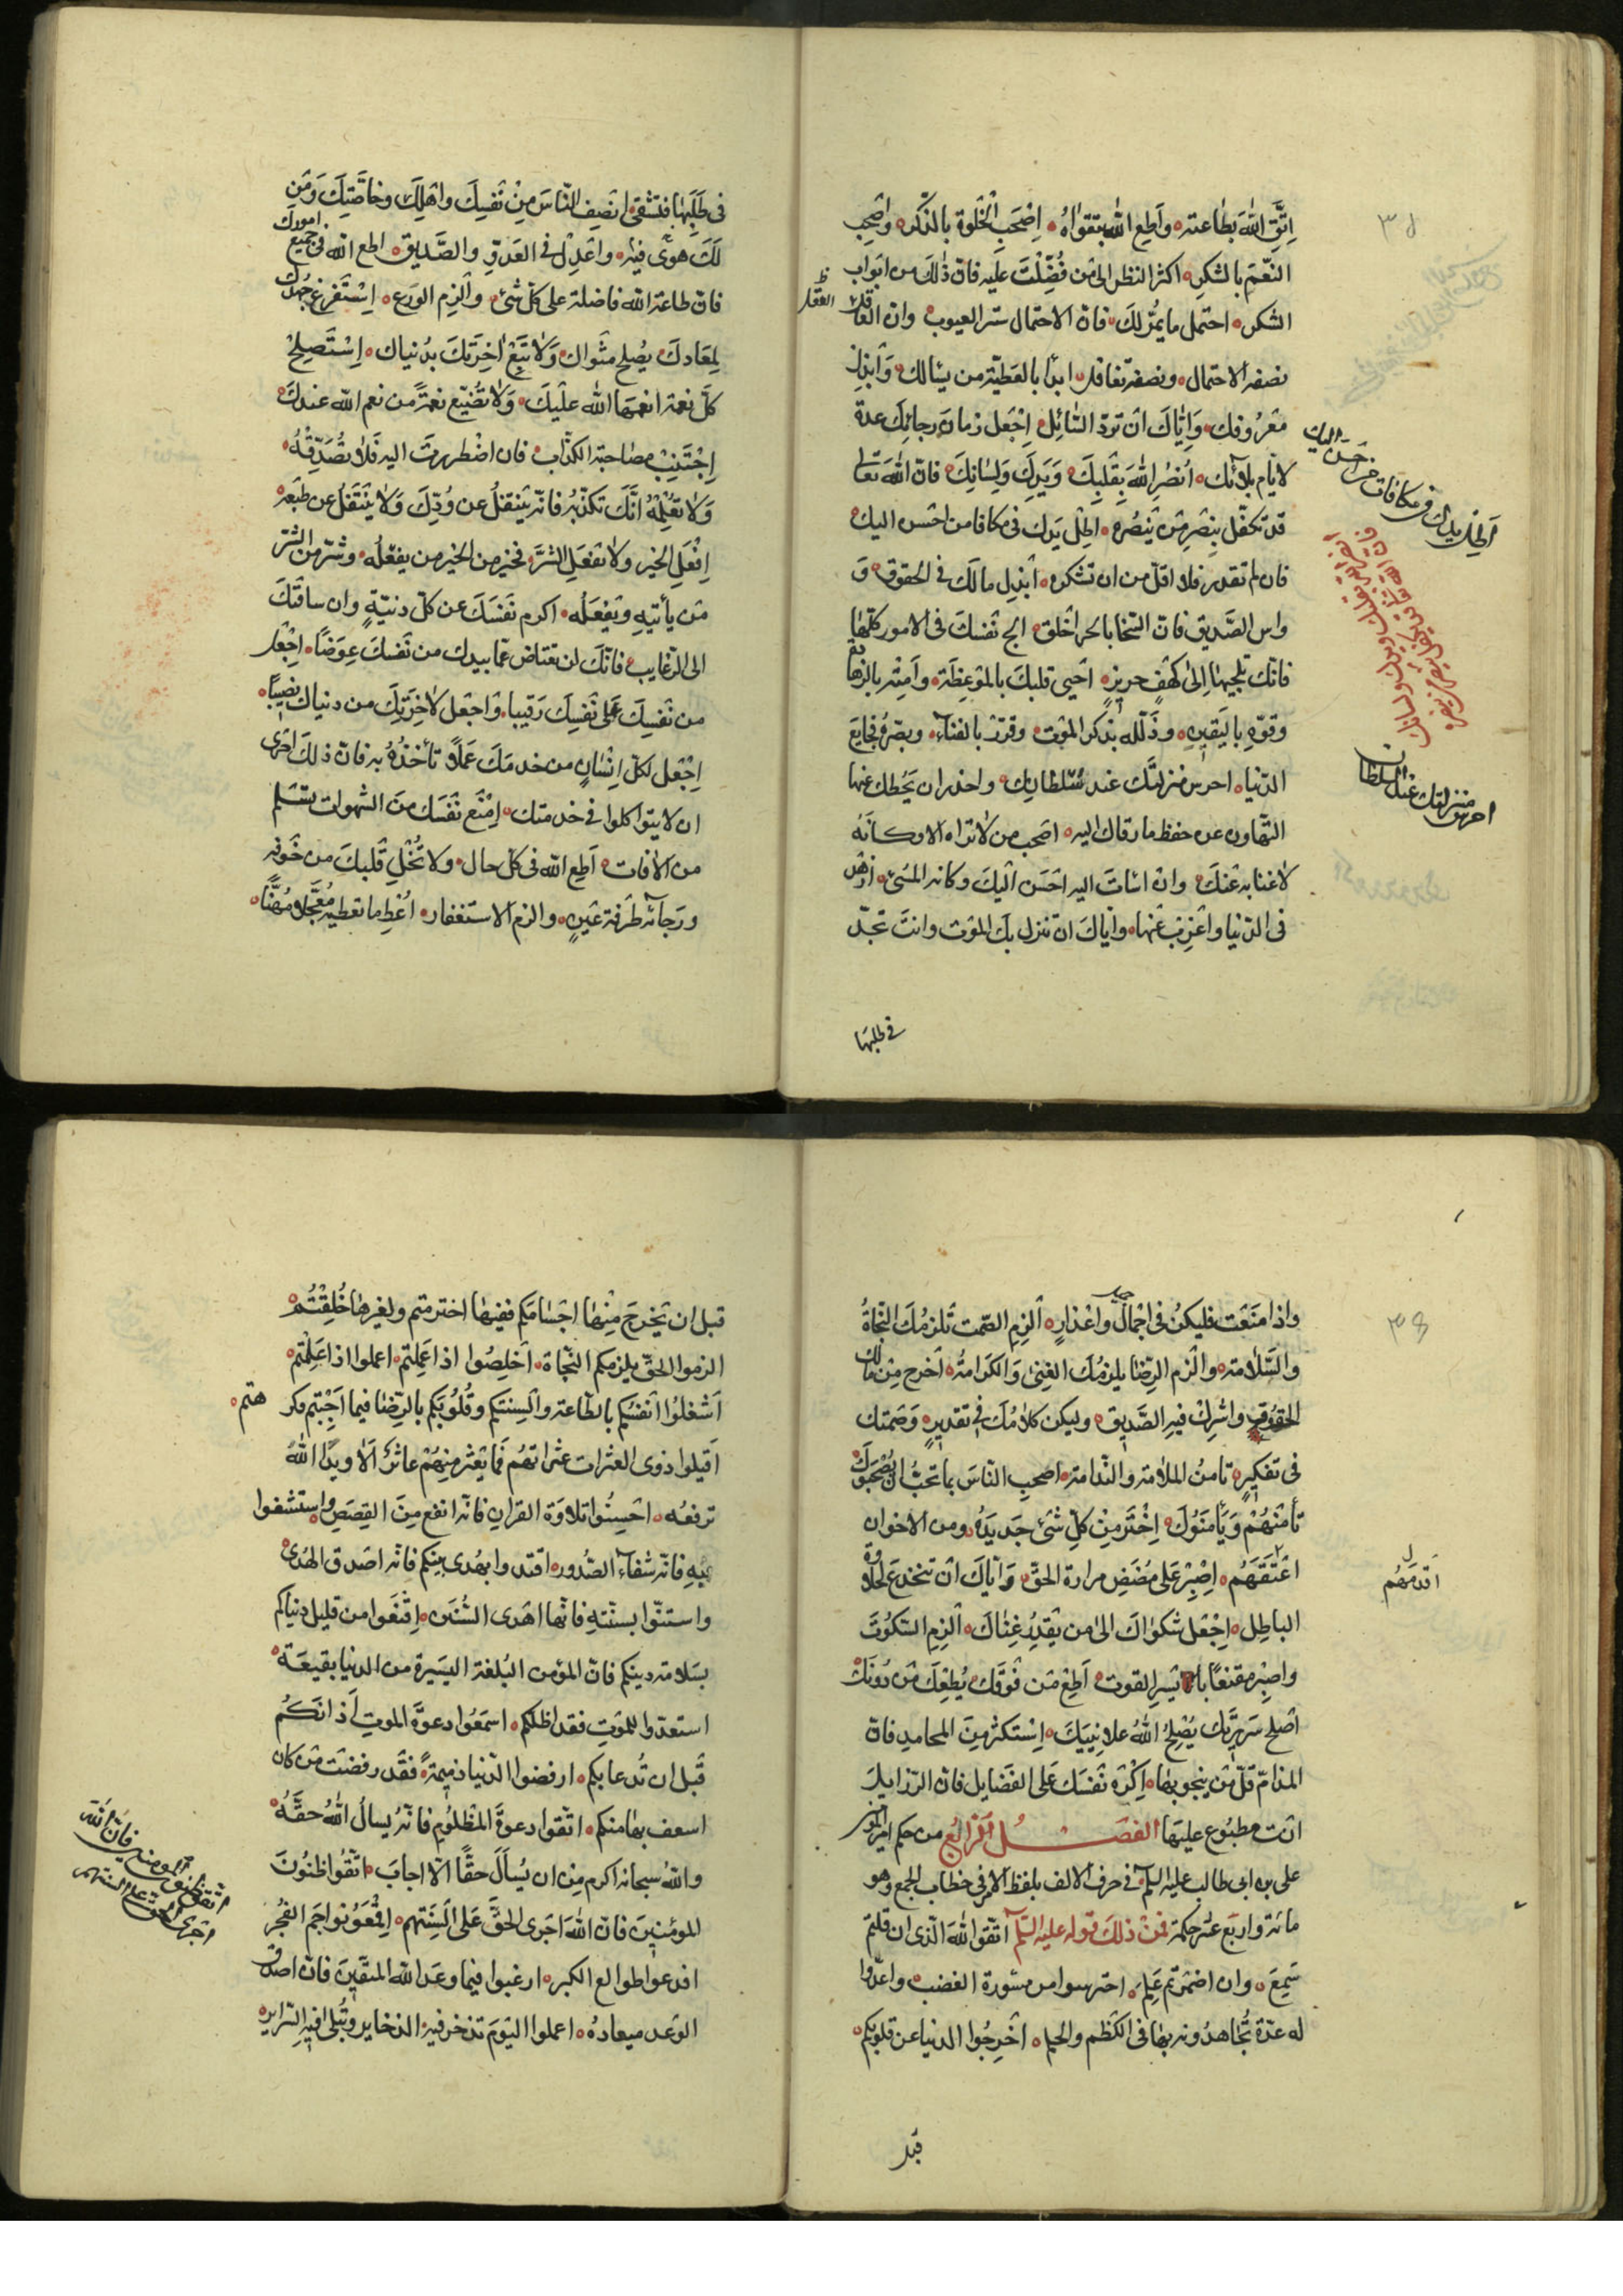 اِتَّقِ اللّٰهَ بطاعته وأطع اللّٰه بتقواه اِصْحَبِ الخلوة بالذّكر واصحب
النّعم بالشكر اكثر النظر الى من فُضّلتَ عليه فانّ ذٰلك من ابواب
الشكر احتمل ما يمرّ لك فانّ الاحتمال ستر العيوب وانّ العاقل
نصفه الاحتمال ونصفه تغافل ابدأ بالعطيّة من يسالك وابذل
معروفك وَايّاك ان تردّ السّائل اِجْعل زمان رجائك عدة
لايّام بلائك اُنصُر اللّٰهَ بقلبك وَيَدِكَ وَلِسَانِكَ فانّ اللّٰه تعالى
قد تكفّل بنصر من ينصُره اطل يدك فى مكافا من احسن اليك
فان لم تقدر فلا اقل من ان تشكره ابذل مالك فى الحقوق وَ
واس الصّديق فانّ السّخا بالحر اخلق الج نفسك فى الامور كلّها
فانّك تلجيها الىٰ كهف حريز احيى قلبك بالموعظة وَامته بالزهادة
وقوّه باليقين وذلّله بذكر الموت وقرّره بالفناء وبصّره فجايع
الدّنيا احرس منزلتك عند سُلطانك واحذر ان يَحُطك عنها
التّهاون عن حفظ ما رقاك اليه اصحب من لا تراه الا وكأنّه
لاغنا به عنك وان اسأت اليه احسن اليك وكانه المسئ ازهد
فى الدّنيا واعزب عنها وايّاك ان تنزل بك الموت وانت تجدّ
فى طلبها
العقل
اطل يدك فى مكافات من احسن اليك
انصر اللّه بقلبك ويدك ولسانك
فان اللّه قد تكفل بنصر من ينصره
احرس منزلتك عند السلطان
فى طَلَبها فتشقى انصف النّاس مِنْ نفسك واهلك وخاصّتك وَمَن
لَكَ هوىً فيه واعدل فى العدوّ والصّديق اطع اللّه فى جميع امورك
فانّ طاعة اللّه فاضلة على كلّ شئ والزم الورع اِسْتَفرغ جهدك
لمعادك يُصلح مثواك وَلا تَبِع اٰخرتك بدنياك اِسْتَصلح
كلّ نعمة انعمها اللّٰه عليك وَلا تُضيّع نعمةً من نعم اللّه عندك
اِجْتَنِب مصاحبة الكذّاب فان اضطررتَ اليه فَلا تُصَدِّقْهُ
وَلا تُعْلِمْهُ انّك تكذّبُه فانّه ينتقلُ عن وُدّك وَلا يَنْتَقلُ عن طبعه
اِفعل الخير ولا تفعَل الشرّ فخير من الخير من يفعلُه وشرّ من الشر
من يأتيه ويفعله اكرم نفسك عن كلّ دنيّة وان ساقتك
الى الرّغايب فانّك لن تعتاض عمّا بيدك من نفسك عوضاً اِجْعل
من نفسك على نفسك رقيبا واجعل لاٰخرتك من دنياك نصيباً
اِجْعل لكلّ اِنْسٰان من خدمك عملاً تأخذُه به فانّ ذلك احرى
ان لا يتواكلوا فى خدمتك اِمْنَع نفسك من الشهوات تسلم
من الاٰفات اطِع اللّه فى كلّ حال ولا تُخل قلبك من خوفه
ورجائه طرفة عين والزم الاستغفار اُعْط ما تعطيه مُعجّلا مُهنّا
واذا منعت فليكن فى اجمال واعذار الزِم الصّمت تلزمك النّجاةُ
والسّلامة والزم الرضا يلزمك الغِنى والكرامةُ اخرج مِن مالك
الحقوق واشرك فيه الصّديق وليكن كلامك فى تقدير وَصَمتك
فى تفكير تأمن الملامة والنّدامة اصحبِ النّاسَ بما تحبّ ان يصحبوك
تأمَنْهُمْ وَيأمَنُوك اِخْتَر مِنْ كلّ شئ جَديدَه ومن الاخوان
اعتقهم اِصْبِر على مُضَض مرارة الحقّ وَايّاك ان تنخدع لحلاوة
الباطِل اِجْعَل شكواك الىٰ من يقدر غناك الزِم السّكوت
واصبر مقتنعًا بايسر القوت اَطِع مَن فوقك يُطعك من دونك
اصلح سريرتك يُصلح اللّهُ علانيتك اِسْتكثر مِن المحامد فانّ
المذامّ قلّ من ينجو بها اكره نفسك على الفضايل فانّ الرّذايل
انت مطبوع عليها الفصل الرابع من حكم امير المؤمنين
على بن ابى طالب عليه السلم فى حرف الالف بلفظ الامر فى خطاب الجمع وهو
مائة واربع عشر حكمة فمن ذلك قوله عليه السلم اتّقو اللّه الّذى ان قلتم
سَمِعَ وان اضمرتم علِم احترسوا من سورة الغضب واعدّوا
له عدّة تُجاهدونه بها فى الكظم والحلم اخرجوا الدنيا عن قلوبكم
قبل
اقدمَهُم
قبل ان تخرجَ مِنها اجسامكم ففيها اخترمتم ولغيرها خُلِقتُم
الزموا الحقّ يلزمكم النّجاة اخلِصُوا اذا عَمِلتم اعملوا اذا عَلِمْتم
اَشغلُوا انفسكم بالطاعة والسنتكم وقُلُوبكم بالرّضا فيما احببتم وكرهتم
اقيلوا ذوى العثرات عثراتهم فما يعثر منهم عاثر الا ويدُ اللّه
ترفعُه احسِنُوا تلاوة القراٰن فانّه انفع مِن القصص واستشفوا
بِهِ فانّه شفاء الصّدور اقتدوا بهدى نبيّكم فانّه اصدق الهُدى
واستنّوا بسنّته فانّها اهدى السُّنَن اِقنَعوا من قليل دنياكم
بسلامة دينكم فانّ المؤمن البُلغة اليسيرة من الدنيا بقيعة
استعدّوا للموت فقد اظلكم اسمعُوا دعوة الموت اٰذانكُم
قبل ان تُدعا بكم ارفضوا الدّنيا ذميمةً فقد رفضت من كان
اسعف بها منكم اتّقوا دعوة المظلوم فانّه يسألُ اللّه حقّهُ
واللّه سبحانه اكرم مِن ان يُسأل حقًا الّا اجابَ اتّقُوا ظنُونَ
المؤمنين فانّ اللّه اجرى الحقّ على السنتهم اقمعوا نواجم الفخر
اقدعوا طوالع الكبر ارغبوا فيما وعد اللّه المتقين فانّ اصدق
الوعد ميعادُه اعملوا اليوم تذخر فيه الذخاير وتُبلى فيه السّراير
اتقوا ظنون المومنين فان اللّه
اجرى الحق على السنتهم